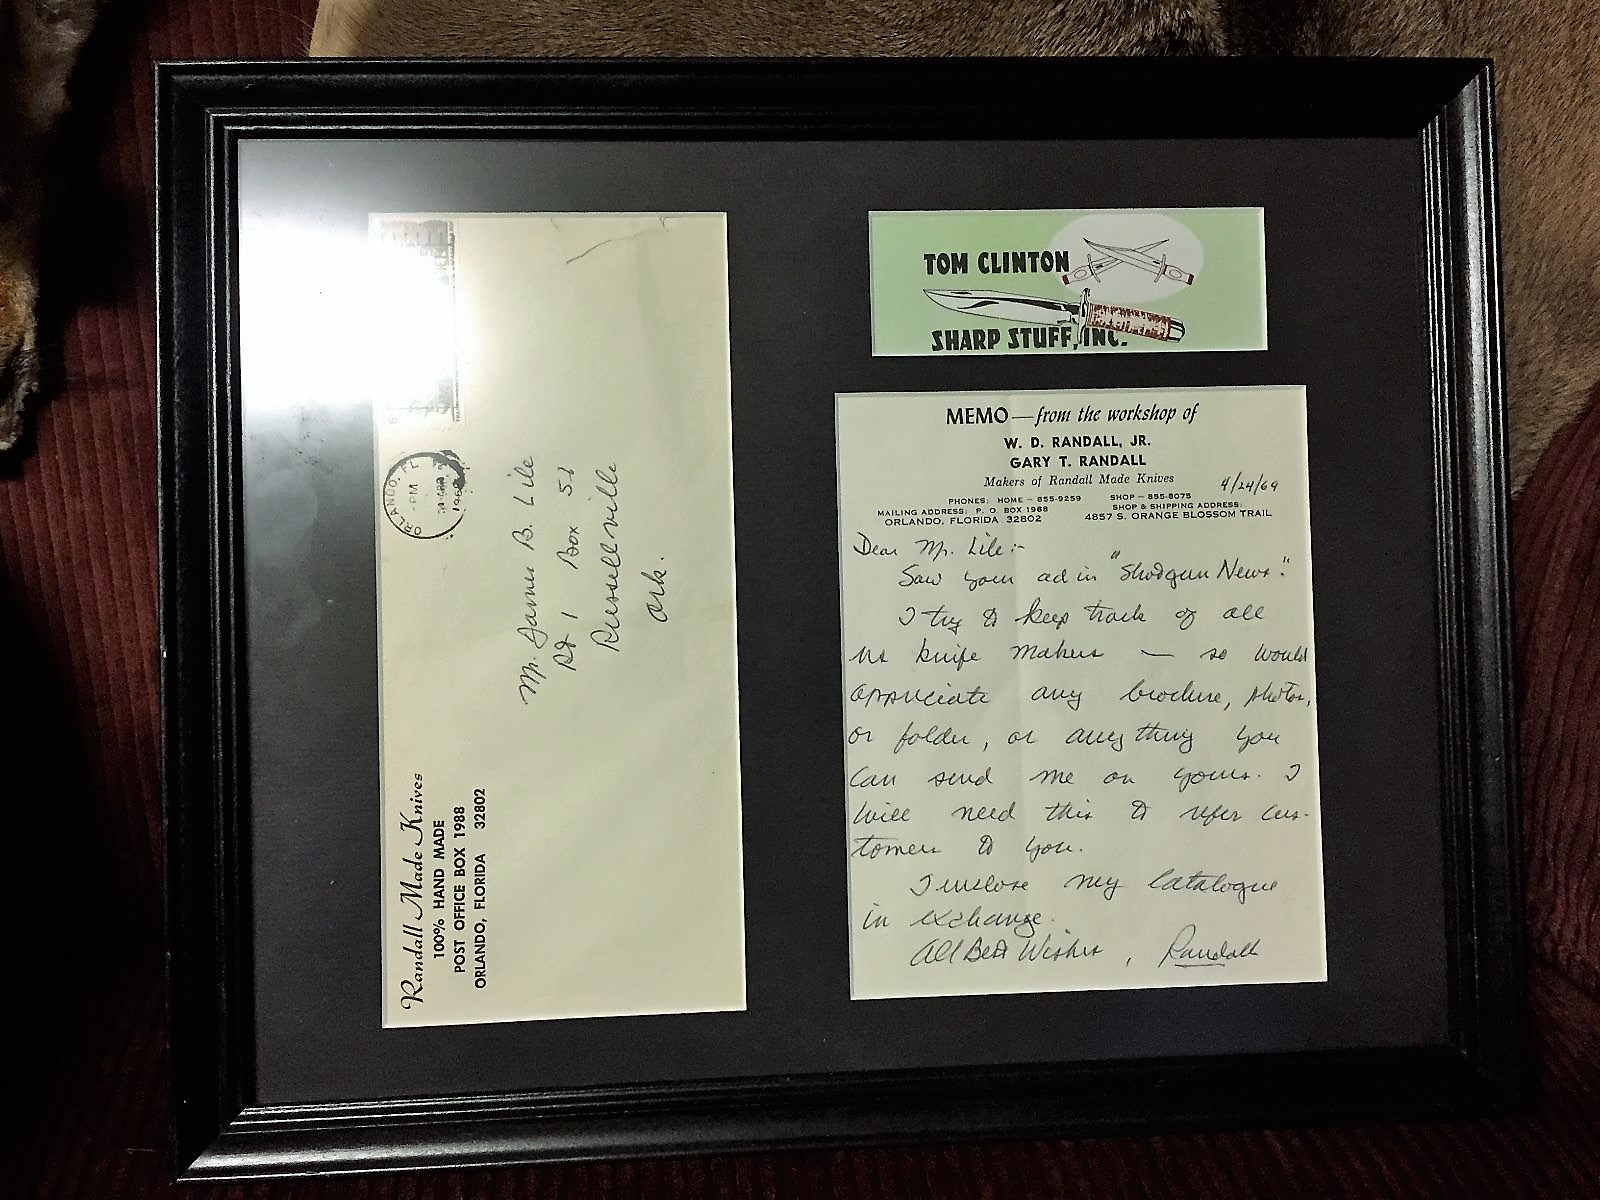 ORLANDO, FL
PM
1969
Mr. James B. Lile
Rt 1 Box 51
Russellville
Ark.
Randall Made Knives
100% HAND MADE
POST OFFICE BOX 1988
ORLANDO, FLORIDA 32802
TOM CLINTON
SHARP STUFF, INC.
MEMO — from the workshop of
W. D. RANDALL, JR.
GARY T. RANDALL
Makers of Randall Made Knives
4/24/69
PHONES: HOME – 855-9259 SHOP – 855-8075
MAILING ADDRESS: P. O. BOX 1988 SHOP & SHIPPING ADDRESS:
ORLANDO, FLORIDA 32802 4857 S. ORANGE BLOSSOM TRAIL
Dear Mr. Lile:-
Saw your ad in "Shotgun News."
I try to keep track of all
us knife makers — so would
appreciate any brochure, photos,
or folder, or anything you
can send me on yours. I
will need this to refer cus-
tomers to you.
I enclose my catalogue
in exchange.
All Best Wishes, Randall